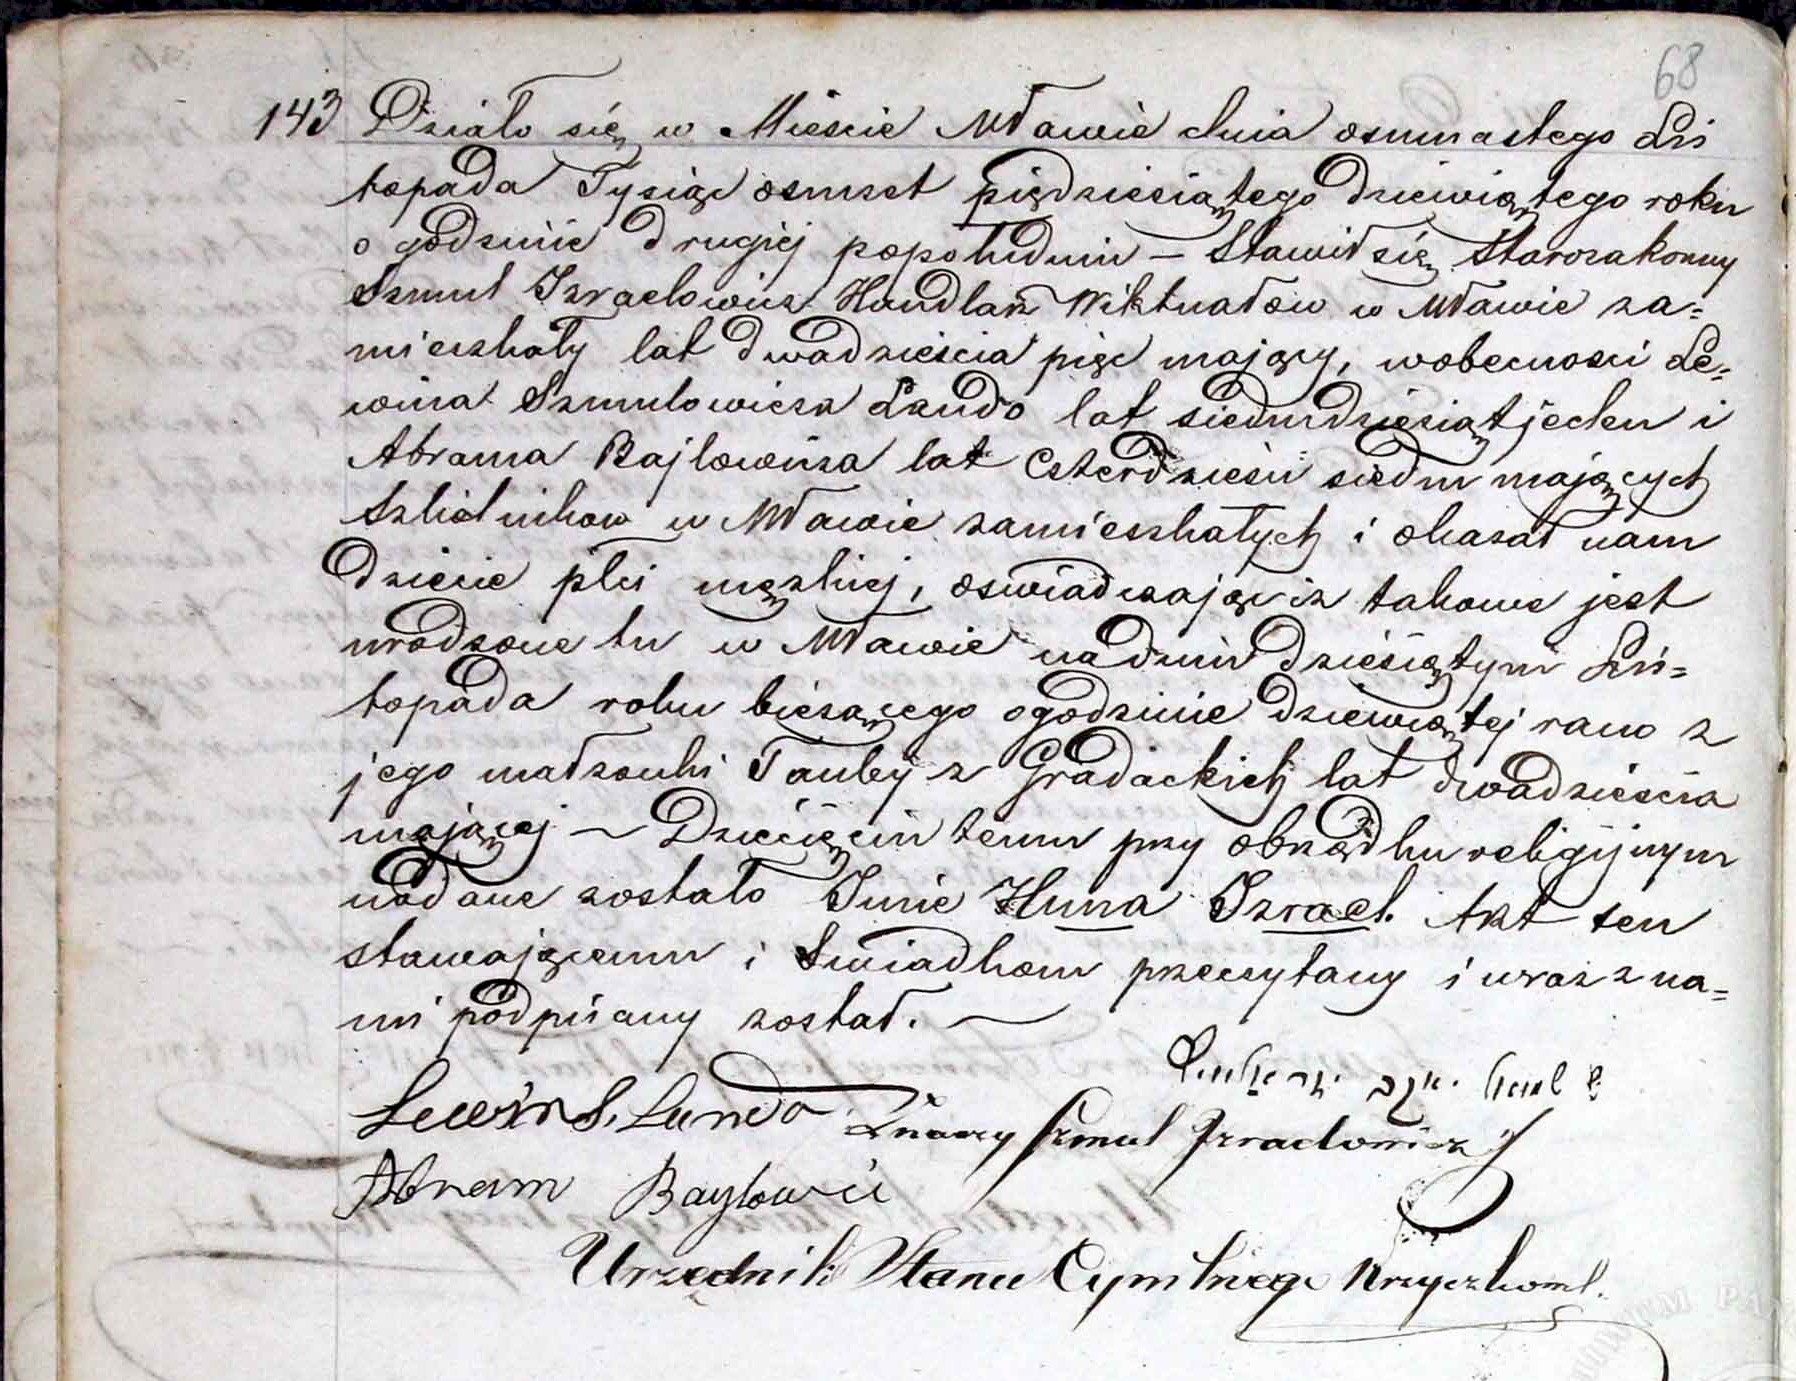 68
143 Działo się w Mieście Mławie dnia osmnastego Lis
topada Tysiąc osmset piędziesiątego dziewiątego roku
o godzinie drugiej popołudniu – Stawił się Starozakonny
Szmul Izraelowicz Handlarz Wiktuałow w Mławie za=
mieszkały lat dwadzieścia pięc mający, wobecnosci Le=
wina Szmulowicza Lando lat siedmdziesiąt jeden i
Abrama Bajlowicza lat Czterdzieści siedm mających
Szkolnikow w Mławie zamieszkałych i okazał nam
dziecie płci męzkiej, oswiadczając iz takowe jest
urodzone tu w Mławie na dniu dziesiątym Lis=
topada roku bieżącego o godzinie dziewiątej rano z
jego małzonki Tauby z Gradackich lat dwadzieścia
mającej – Dziecięciu temu przy obrządku religijnym
nadane zostało Imie Huna Izrael. Akt ten
stawającemu i Swiadkom przeczytany i wraz z na=
mi podpisany został. –
Lewin S. Lando Szmul Izraelowicz
Abram Baylowic
Urzędnik Stanu Cywilnego